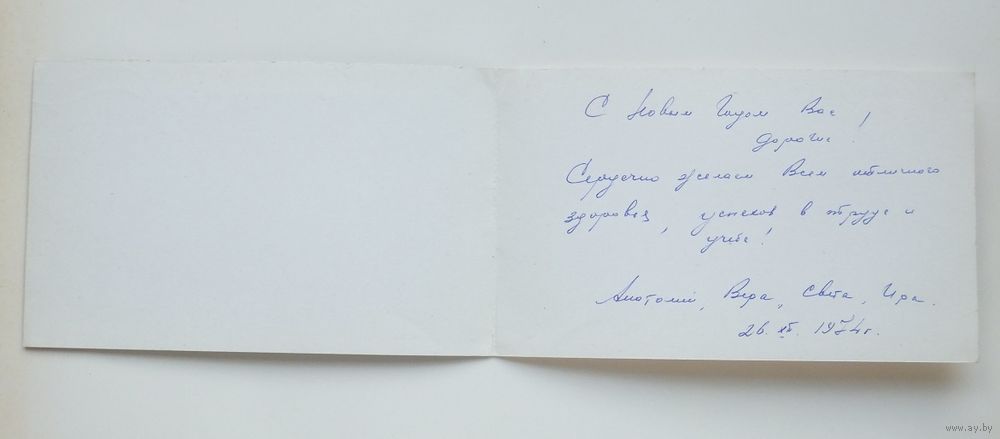 С Новым Годом Вас,
дорогие!
Сердечно желаем Всем отличного
здоровья, успехов в труде и
учёбе!
Анатолий, Вера, Света, Ира.
26. XII. 1974г.
www.ay.by